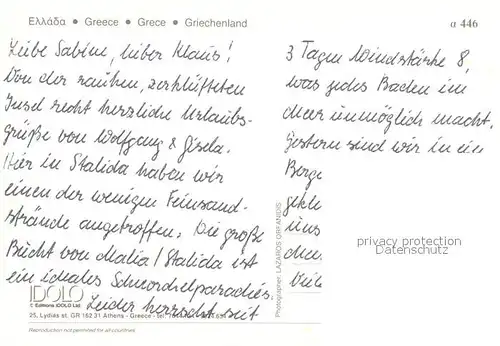 Ελλάδα • Greece • Grece • Griechenland
α 446
Liebe Sabine, lieber Klaus!
Von der rauhen, zerklüfteten
Insel recht herzliche Urlaubs-
grüße von Wolfgang & Gisela.
Hier in Stalida haben wir
einen der wenigen Feinsand-
strände angetroffen. Die große
Bucht von Malia/Stalida ist
ein ideales Schnorchelparadies.
Leider herrscht seit
3 Tagen Windstärke 8,
was jedes Baden im
Meer unmöglich macht.
Gestern sind wir in ein
Berge
uns
Meer
Viele
Photographer: LAZAROS ORFANIDIS
privacy protection
Datenschutz
IDOLO
© Editions IDOLO Ltd.
25, Lydias st. GR 162 31 Athens - Greece - tel.:
Reproduction not permitted for all countries.